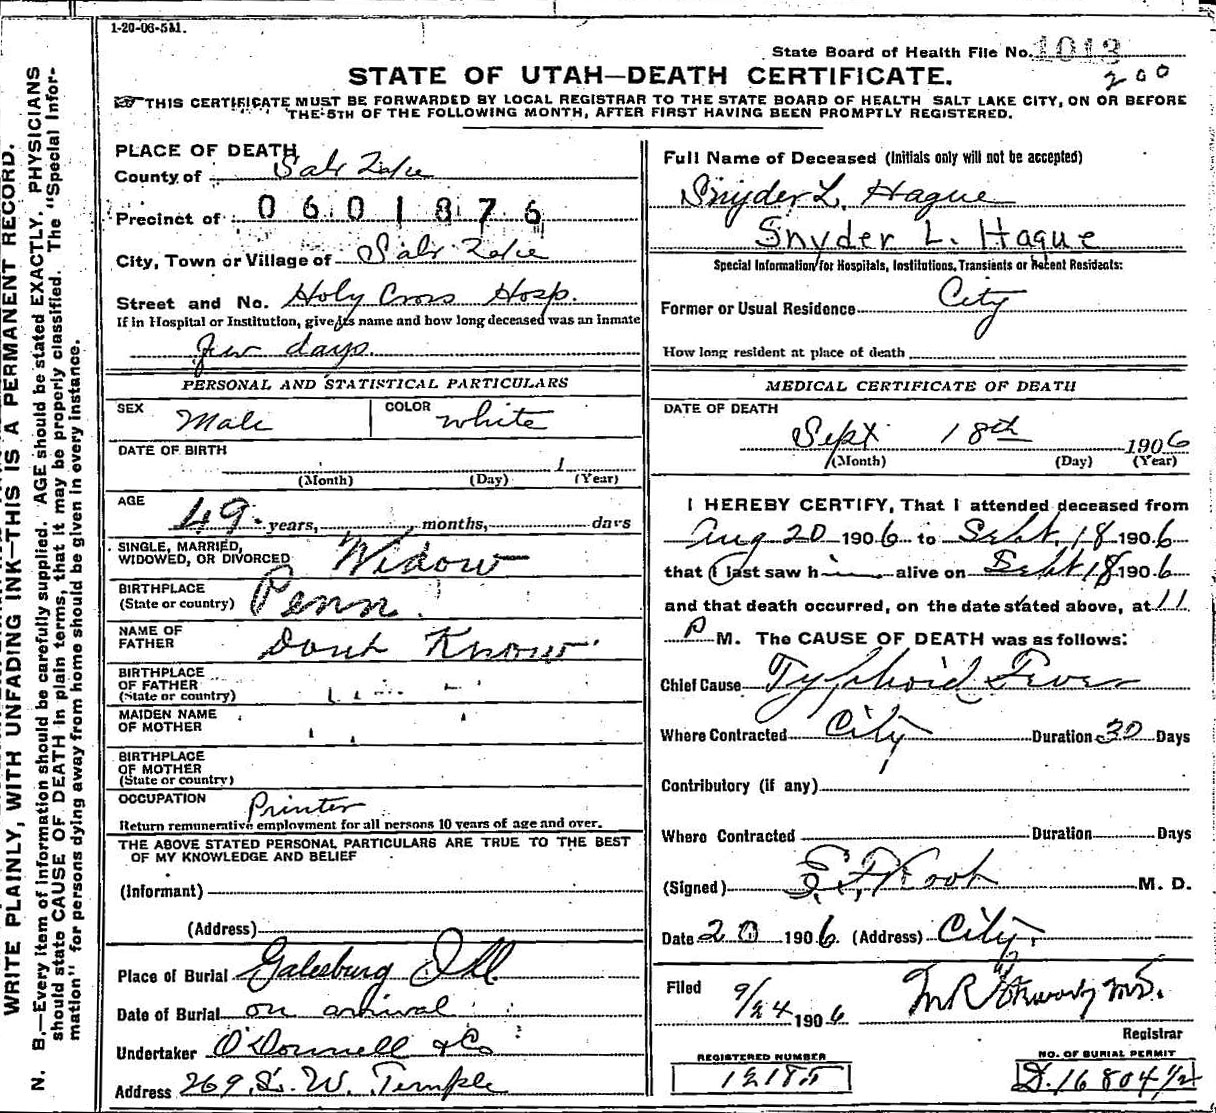 1-20-06-5M.
State Board of Health File No. 1013
200
STATE OF UTAH—DEATH CERTIFICATE.
THIS CERTIFICATE MUST BE FORWARDED BY LOCAL REGISTRAR TO THE STATE BOARD OF HEALTH SALT LAKE CITY, ON OR BEFORE
THE 5TH OF THE FOLLOWING MONTH, AFTER FIRST HAVING BEEN PROMPTLY REGISTERED.
WRITE PLAINLY, WITH UNFADING INK—THIS IS A PERMANENT RECORD.
N. B.—Every item of information should be carefully supplied. AGE should be stated EXACTLY. PHYSICIANS
should state CAUSE OF DEATH in plain terms, that it may be properly classified. The "Special Infor-
mation" for persons dying away from home should be given in every instance.
PLACE OF DEATH
County of Salt Lake
Precinct of 0601876
City, Town or Village of Salt Lake
Street and No. Holy Cross Hosp.
If in Hospital or Institution, give its name and how long deceased was an inmate
few days.
PERSONAL AND STATISTICAL PARTICULARS
SEX Male COLOR White
DATE OF BIRTH
1
(Month) (Day) (Year)
AGE
49 years, months, days
SINGLE, MARRIED,
WIDOWED, OR DIVORCED Widow
BIRTHPLACE
(State or country) Penn.
NAME OF
FATHER Dont Know
BIRTHPLACE
OF FATHER
(State or country)
MAIDEN NAME
OF MOTHER
BIRTHPLACE
OF MOTHER
(State or country)
OCCUPATION Printer
Return remunerative employment for all persons 10 years of age and over.
THE ABOVE STATED PERSONAL PARTICULARS ARE TRUE TO THE BEST
OF MY KNOWLEDGE AND BELIEF
(Informant)
(Address)
Place of Burial Galesburg Ill
Date of Burial on arrival
Undertaker O'Donnell & Co
Address 269 S. W. Temple
Full Name of Deceased (Initials only will not be accepted)
Snyder L. Hague
Snyder L. Hague
Special Information for Hospitals, Institutions, Transients or Recent Residents:
Former or Usual Residence City
How long resident at place of death
MEDICAL CERTIFICATE OF DEATH
DATE OF DEATH
Sept 18th 1906
(Month) (Day) (Year)
I HEREBY CERTIFY, That I attended deceased from
Aug 20 1906 to Sept. 18 1906
that I last saw him alive on Sept 18 1906
and that death occurred, on the date stated above, at 11
P M. The CAUSE OF DEATH was as follows:
Chief Cause Typhoid Fever
Where Contracted City Duration 30 Days
Contributory (if any)
Where Contracted Duration Days
(Signed) M. D.
Date 20 1906. (Address) City.
Filed 9/24 1906 M.D.
Registrar
REGISTERED NUMBER
12185
NO. OF BURIAL PERMIT
D.16804½